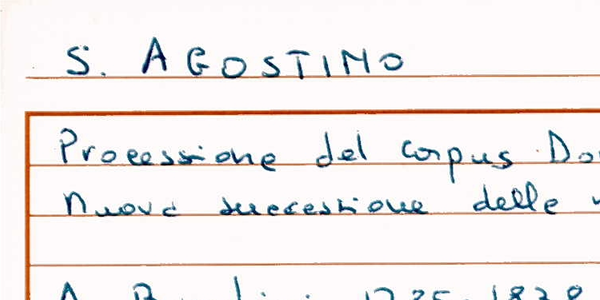 S. AGOSTINO
Processione del Corpus
Nuova successione delle
A.